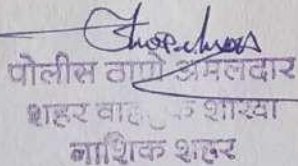 पोलीस ठाणे अंमलदार
शहर वाहतूक शाखा
नाशिक शहर